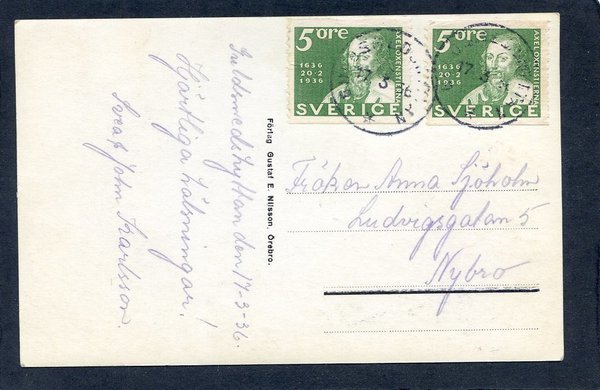 5 öre
1636
20·2
1936
AXEL OXENSTIERNA
SVERIGE
5 öre
1636
20·2
1936
AXEL OXENSTIERNA
SVERIGE
17 3
Guldsmedshyttan den 17-3-36.
Hjärtliga hälsningar!
Svea John Karlsson.
Förlag Gustaf E. Nilsson, Örebro.
Fröken Anna Sjöholm
Ludvigsgatan 5
Nybro